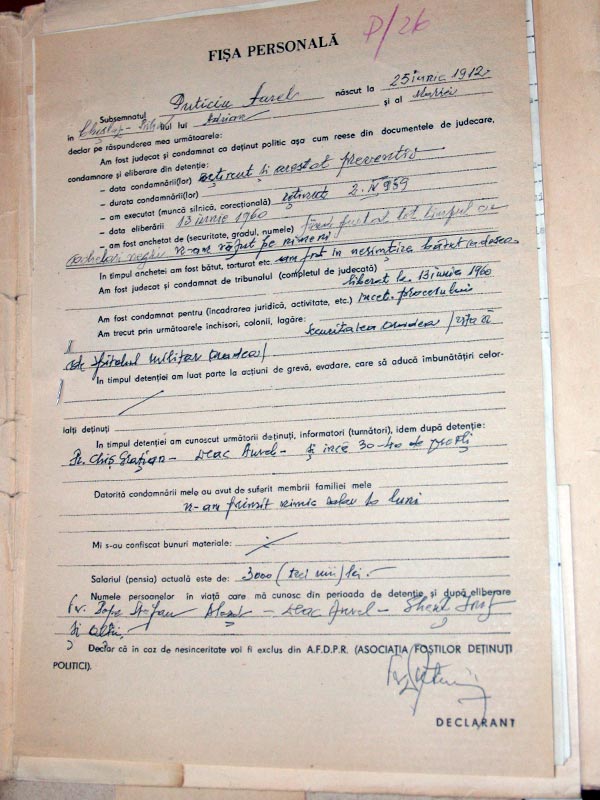 P/26
FIȘA PERSONALĂ
Subsemnatul Puticiu Aurel născut la 25 iunie 1912
în lui Adrian și al Maria
declar pe răspunderea mea următoarele:
Am fost judecat și condamnat ca deținut politic așa cum reese din documentele de judecare,
condamnare și eliberare din detenție:
— data condamnării(lor) reținut și arestat preventiv
— durata condamnării(lor)
— am executat (muncă silnică, corecțională) reținut
— data eliberării 13 iunie 1960
— am fost anchetat de (securitate, gradul, numele) tot timpul cu
ochelari negri n-am văzut pe nimeni
În timpul anchetei am fost bătut, torturat etc. am fost în nesimțire bătut
Am fost judecat și condamnat de tribunalul (completul de judecată)
liberat la 13 iunie 1960
Am fost condamnat pentru (încadrarea juridică, activitate, etc.) procesului
Am trecut prin următoarele închisori, colonii, lagăre: Securitatea Oradea
de Spitalul militar Oradea
În timpul detenției am luat parte la acțiuni de grevă, evadare, care să aducă îmbunătățiri celor-
lalți deținuți
În timpul detenției am cunoscut următorii deținuți, informatori (turnători), idem după detenție:
Chiș Grațian — Deac Aurel — și încă 30-40 de
Datorită condamnării mele au avut de suferit membrii familiei mele
n-am primit nimic luni
Mi s-au confiscat bunuri materiale:
Salariul (pensia) actuală este de: 3000 (trei mii) lei.—
Numele persoanelor în viață care mă cunosc din perioada de detenție și după eliberare
Pr. Pop Ștefan — Deac Aurel —
și alții.
Declar că în caz de nesinceritate voi fi exclus din A.F.D.P.R. (ASOCIAȚIA FOȘTILOR DEȚINUȚI
POLITICI).
DECLARANT